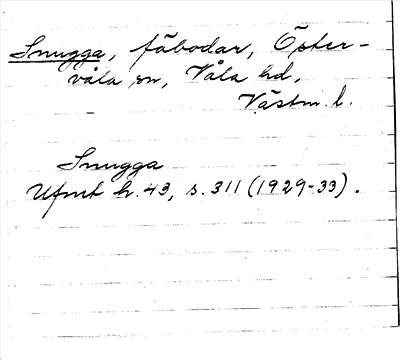 Snugga, fäbodar, Öster-
våla sn, Våla hd,
Västm. l.
Snugga
Ufmt h. 43, s. 311 (1929-33).